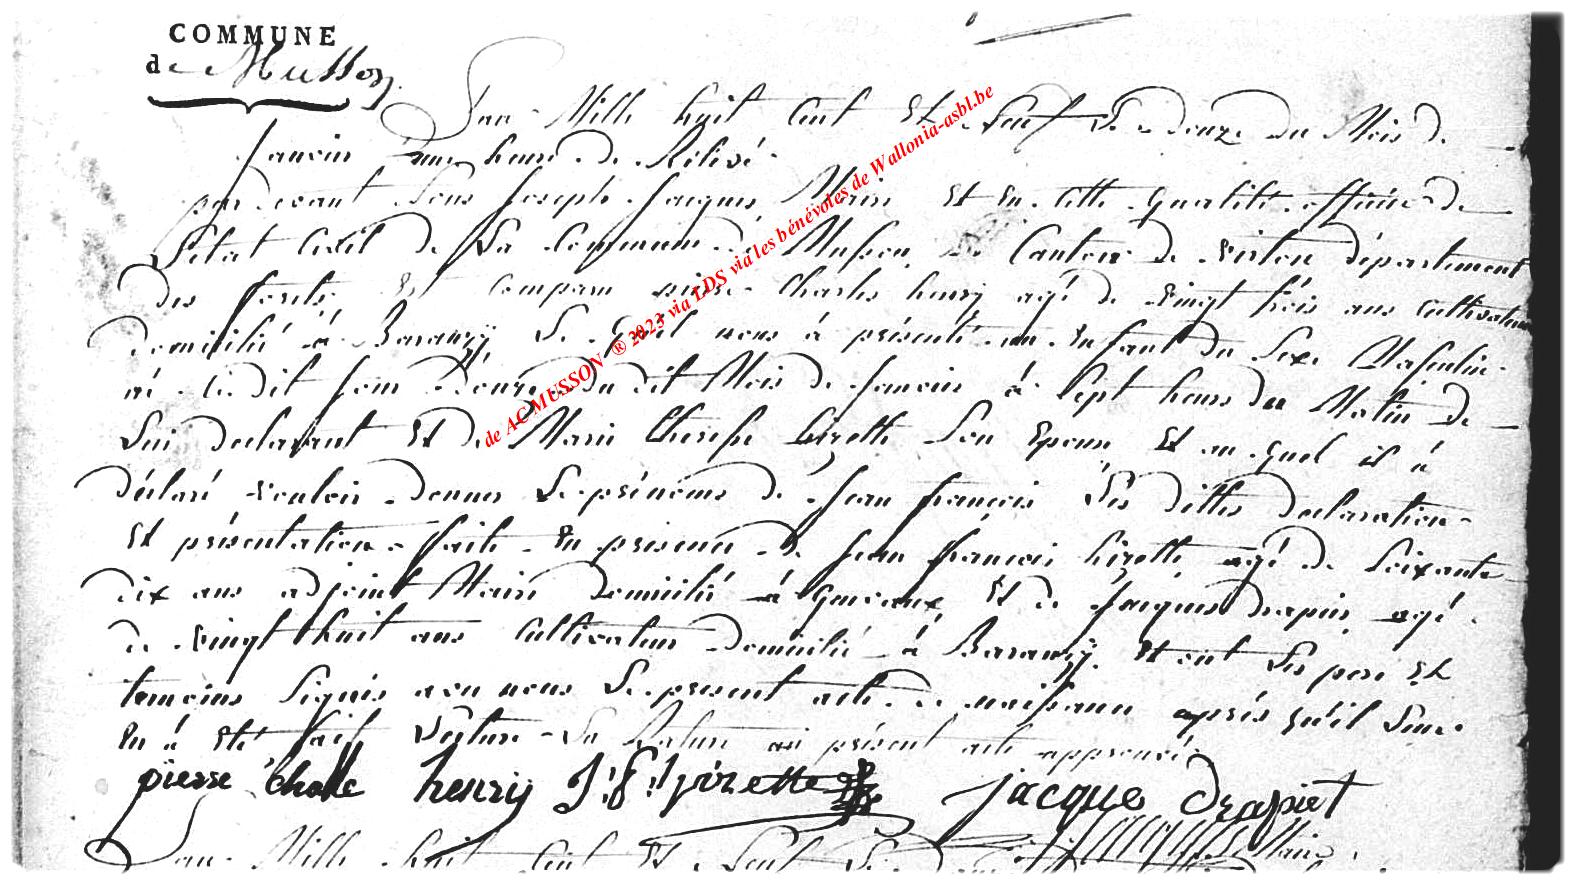 COMMUNE
de Musson
L'an Mille huit Cent Et Neuf Le douze du Mois de
Janvier une heure de Relevé
par devant Nous Joseph Jacques Maire Et en Cette qualité officier de
L'état Civil de La Commune de Musson, Canton de Virton département
des forêts Est Comparu pierre Charles henry agé de vingt trois ans cultivateur
domicilié à Baranzÿ Lequel nous à présenté un Enfant du Sexe Masculin
né Cedit jour douze dudit Mois de Janvier à Sept heures du Matin de
Lui declarant Et de Marie Therese Son Epouse Et auquel il à
déclaré vouloir donner Les prénoms de Jean françois Les dittes declaration
Et présentation faite En présence de Jean françois agé de Soixante
dix ans adjoint Maire domicilié à Et de Jacques drapier agé
de vingt huit ans Cultivateur domicilié à Baranzÿ Et ont Les pere Et
temoins Signés avec nous Le present acte de naissance après qu'il Leur
En à Eté fait Lecture La Rature au présent acte approuvée
pierre challe henry J: f: jacque drapiet
Maire
L'an Mille huit Cent Et Neuf Le
de AC MUSSON ® 2023 via LDS via les bénévoles de Wallonia-asbl.be